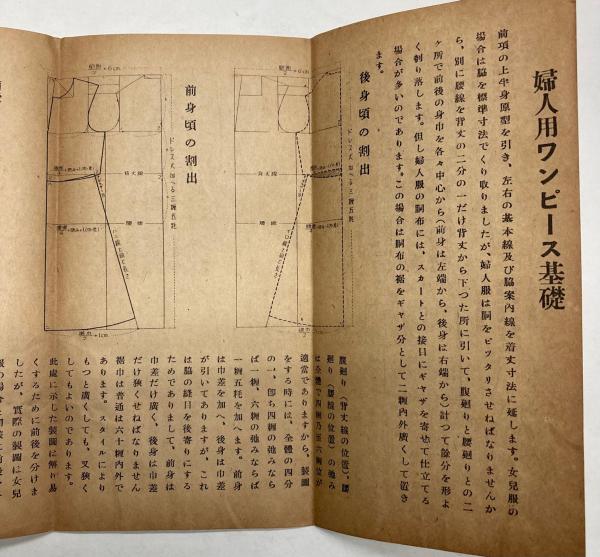 婦人用ワンピース基礎
前項の上半身原型を引き、左右の基本線及び脇案內線を着丈寸法に延します。女兒服の
場合は脇を標準寸法でくり取りましたが、婦人服は胴をピッタリさせねばなりませんか
ら、別に腰線を背丈の二分の一だけ背丈から下つた所に引いて、腹廻りと腰廻りとの二
ケ所で前後の身巾を各々中心から(前身は左端から、後身は右端から)計つて餘分を形よ
く刳り落します。但し婦人服の胴布には、スカートとの接目にギャザを寄せて仕立てる
場合が多いのであります。この場合は胴布の裾をギャザ分として二糎內外廣くして置き
ます。
後身頃の割出
ドレス丈加へる三糎五粍
背丈線
腰線
前身頃の割出
ドレス丈加へる三糎五粍
背丈線
腰線
腹廻り(背丈線の位置)、腰
廻り(腰線の位置)の弛み
は全體で四糎乃至六糎位が
適當でありますから、製圖
をする時には、全體の四分
の一、卽ち四糎の弛みなら
ば一糎、六糎の弛みならば
一糎五粍を加へます。前身
は巾差を加へ、後身は巾差
が引いてありますが、これ
は脇の縫目を後寄りにする
ためでありまして、前身は
巾差だけ廣く、後身は巾差
だけ狹くせねばなりません
裾巾は普通は六十糎內外で
あります。スタイルにより
もつと廣くしても、又狹く
してもよいのであります。
此處に示した製圖は解り易
くするために前後を分けま
したが、實際の製圖は女兒